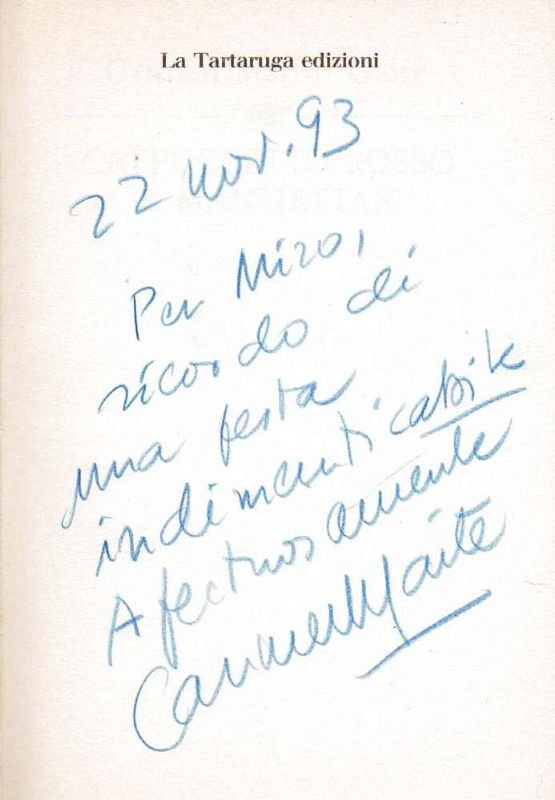 La Tartaruga edizioni
22 nov. 93
Per Mizo,
ricordo di
una festa
indimenticabile
Afectuosamente
Carmen Maite